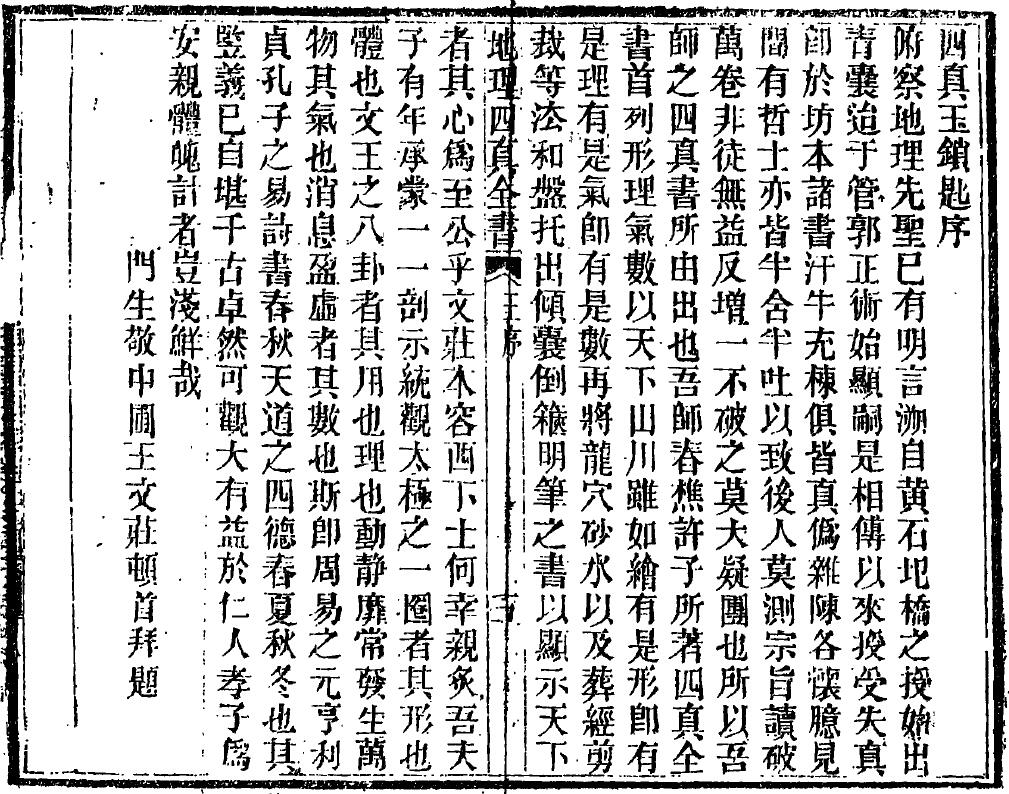 四真玉鎖匙序
俯察地理先聖已有明言溯自黃石圯橋之授始出
青囊迨于管郭正術始顯嗣是相傳以來授受失真
卽於坊本諸書汗牛充棟俱皆真僞雜陳各懷臆見
間有哲士亦皆半含半吐以致後人莫測宗旨讀破
萬卷非徒無益反增一不破之莫大疑團也所以吾
師之四真書所由出也吾師春樵許子所著四真全
書首列形理氣數以天下山川雖如繪有是形卽有
是理有是氣卽有是數再將龍穴砂水以及葬經剪
裁等法和盤托出傾囊倒篋明筆之書以顯示天下
地理四真全書 王序 三
者其心爲至公乎文莊本容西下士何幸親炙吾夫
子有年承蒙一一剖示統觀太極之一圈者其形也
體也文王之八卦者其用也理也動靜靡常發生萬
物其氣也消息盈虛者其數也斯卽周易之元亨利
貞孔子之易詩書春秋天道之四德春夏秋冬也其
竪義已自堪千古卓然可觀大有益於仁人孝子爲
安親體魄計者豈淺鮮哉
門生敬中圃王文莊頓首拜題